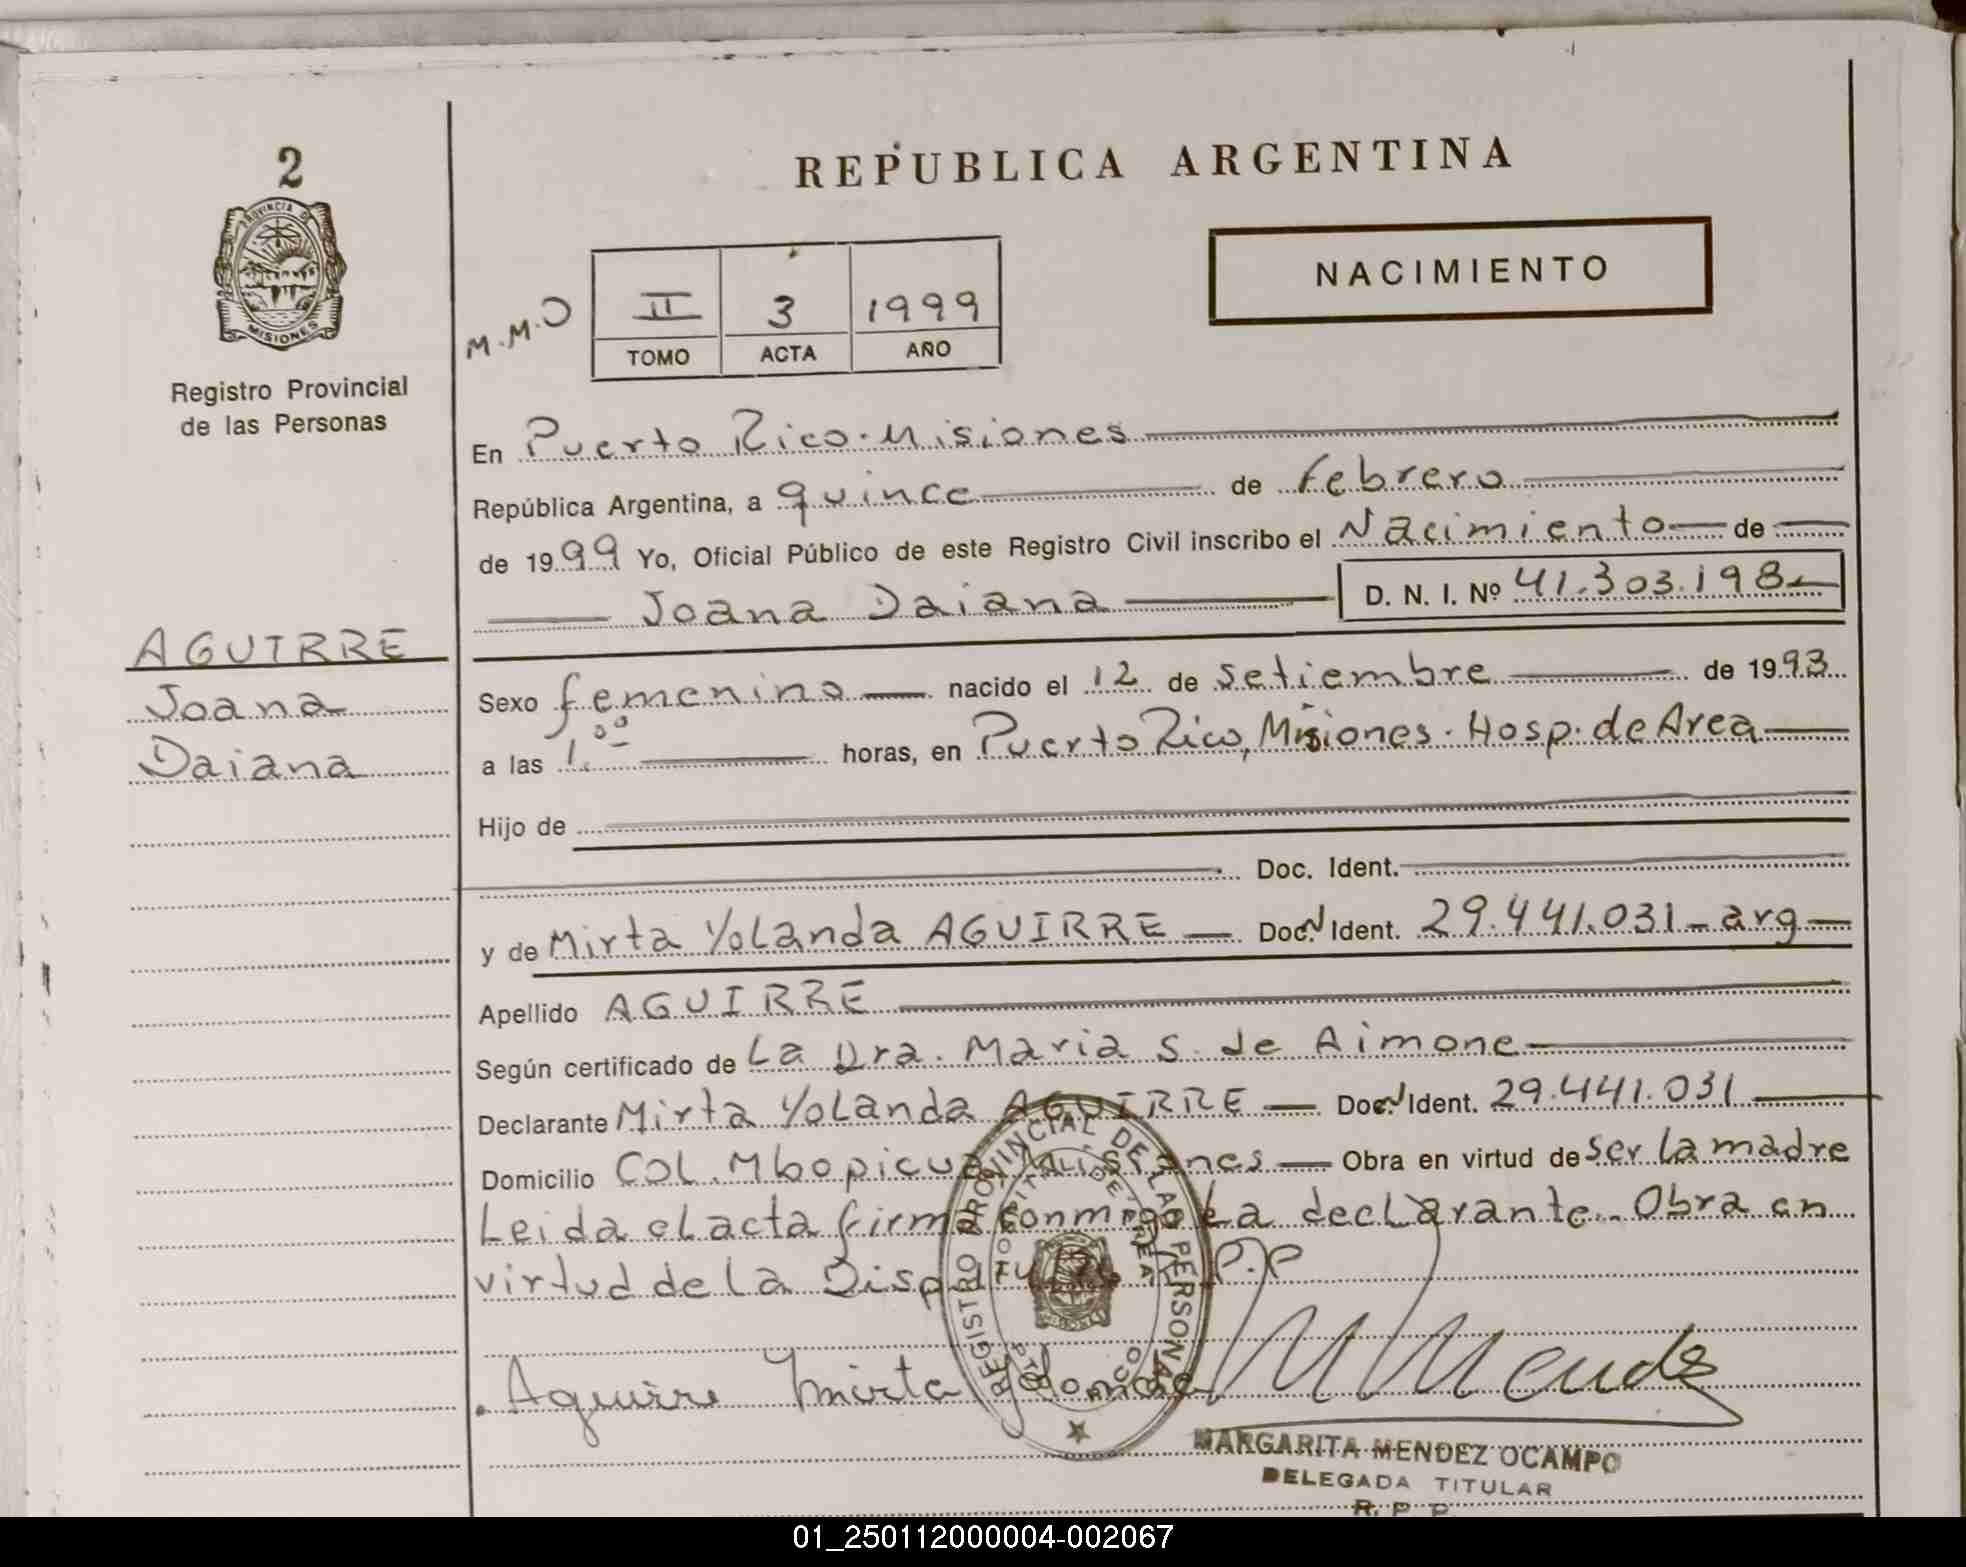 2
PROVINCIA DE
MISIONES
Registro Provincial
de las Personas
REPUBLICA ARGENTINA
NACIMIENTO
M.M.O
II 3 1999
TOMO ACTA AÑO
En Puerto Rico. Misiones
República Argentina, a quince de Febrero
de 1999 Yo, Oficial Público de este Registro Civil inscribo el Nacimiento de
Joana Daiana D. N. I. Nº 41.303.198
AGUIRRE
Joana
Daiana
Sexo femenino nacido el 12 de setiembre de 1993
a las 1.00 horas, en Puerto Rico, Misiones. Hosp. de Area
Hijo de
Doc. Ident.
y de Mirta Yolanda AGUIRRE Doc. N Ident. 29.441.031 - arg
Apellido AGUIRRE
Según certificado de La Dra. Maria S. de Aimone
Declarante Mirta Yolanda AGUIRRE Doc. N Ident. 29.441.031
Domicilio COL. Mbopicua Misiones Obra en virtud de ser la madre
Leida el acta firma conmigo la declarante. Obra en
virtud de la Disp.
P.P
Aguirre Mirta Yolanda M Mendez
REGISTRO PROVINCIAL DE LAS PERSONAS
HOSPITAL DE AREA
PTO. RICO
MARGARITA MENDEZ OCAMPO
DELEGADA TITULAR
R. P. P
01_250112000004-002067